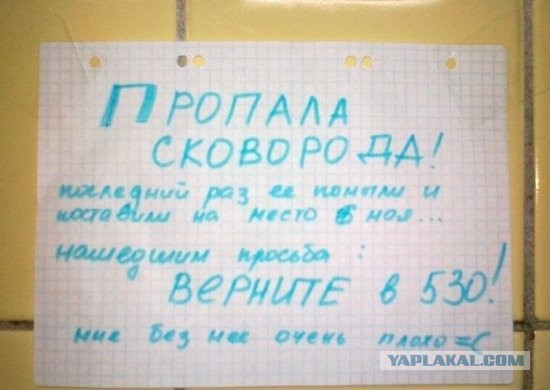 ПРОПАЛА
СКОВОРОДА!
последний раз ее помыли и
поставили на место 6 мая...
нашедшим просьба:
ВЕРНИТЕ в 530!
мне без нее очень плохо =(
YAPLAKAL.COM